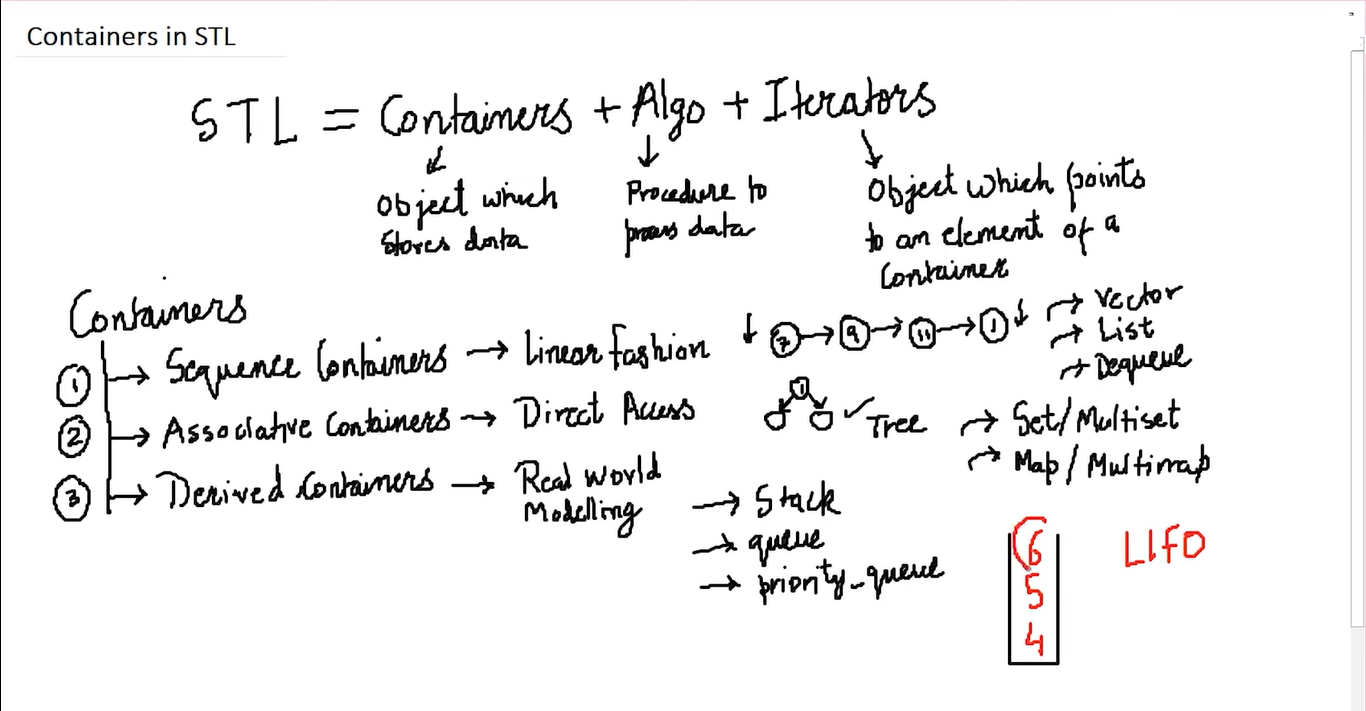 Containers in STL
STL = Containers + Algo + Iterators
Object which
stores data
Procedure to
process data
Object which points
to an element of a
Container
Containers
1 → Sequence Containers → Linear fashion
7 → 9 → 11 → 1
→ Vector
→ List
→ Dequeue
2 → Associative Containers → Direct Access
1
✓ Tree
→ Set/Multiset
→ Map/Multimap
3 → Derived Containers → Real World
Modelling
→ Stack
→ queue
→ priority_queue
6
5
4
LIFO